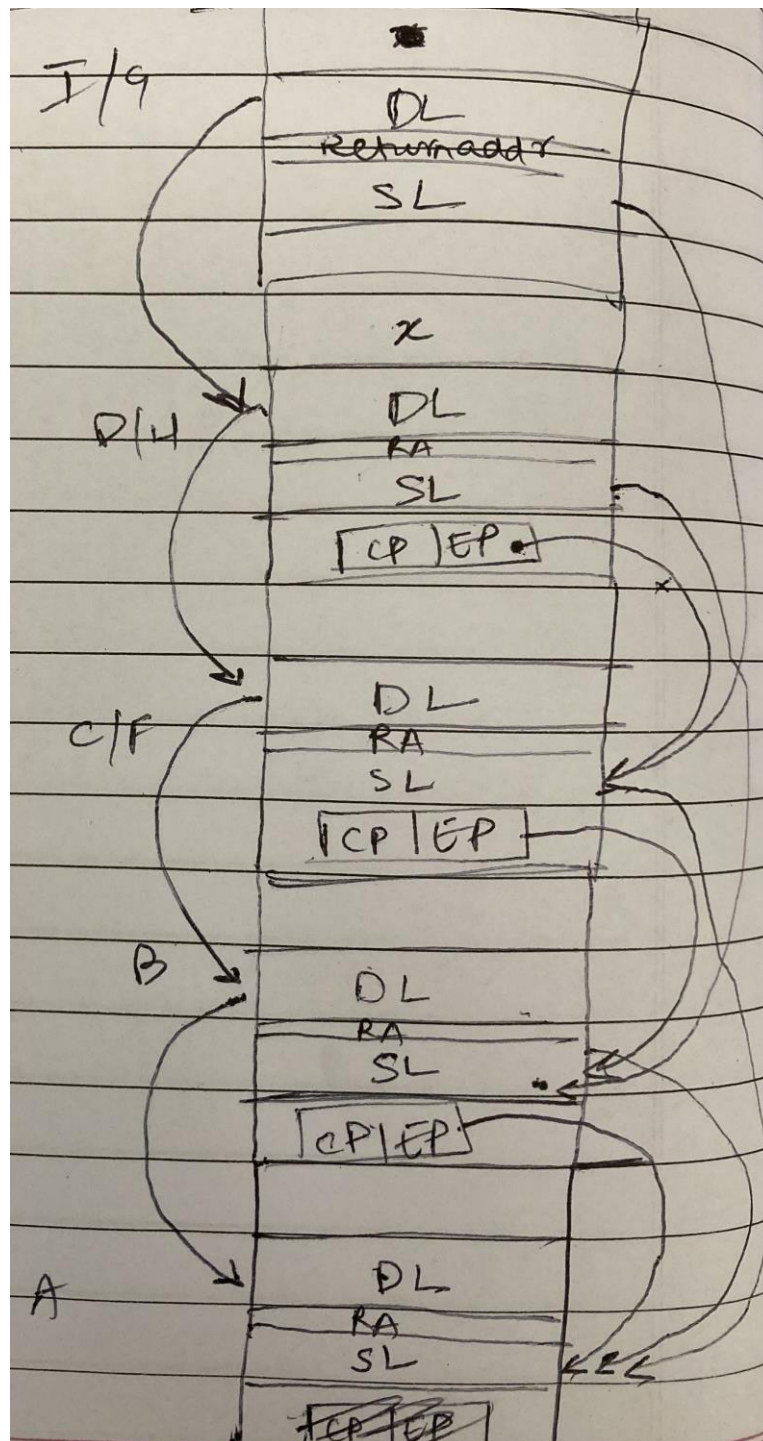 I/G
DL
Returnaddr
SL
x
D/H
DL
RA
SL
CP | EP
x
C/F
DL
RA
SL
CP | EP
B
DL
RA
SL
CP | EP
A
DL
RA
SL
CP | EP